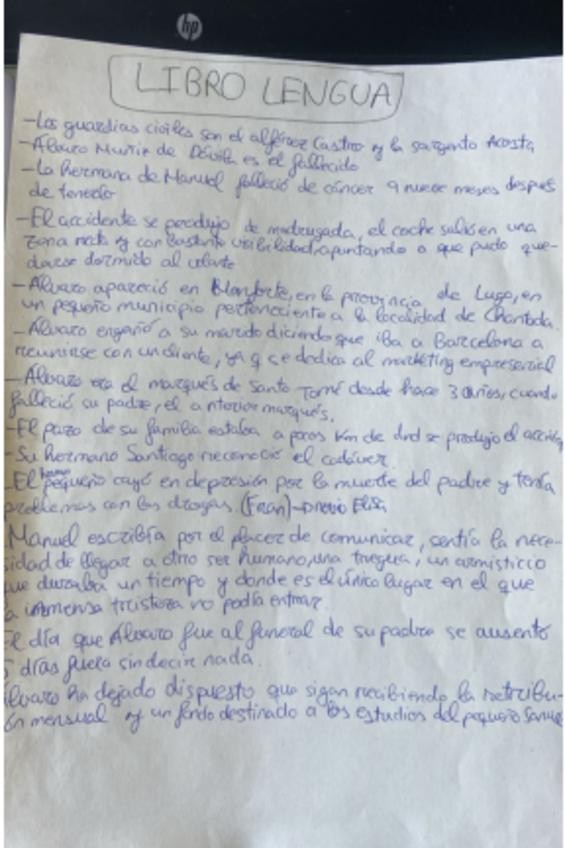 hp
LIBRO LENGUA
-Los guardias civiles son el alférez Castro y la sargento Acosta
-Álvaro Muñiz de Dávila es el fallecido
-La hermana de Manuel falleció de cáncer 9 nueve meses después
de tenerlo
-El accidente se produjo de madrugada, el coche salió en una
zona recta y con bastante visibilidad, apuntando a que pudo que-
darse dormido al volante
-Álvaro apareció en Monforte, en la provincia de Lugo, en
un pequeño municipio perteneciente a la localidad de Chantada.
-Álvaro engañó a su marido diciendo que iba a Barcelona a
reunirse con un cliente, ya q se dedica al marketing empresarial
-Álvaro era el marqués de santo Tomé desde hace 3 años, cuando
falleció su padre, el anterior marqués.
-El pazo de su familia estaba a pocos Km de dnd se produjo el accid
-Su hermano Santiago reconoció el cadáver.
-El hermano pequeño cayó en depresión por la muerte del padre y tenía
problemas con las drogas. (Fran)- novio Elisa
Manuel escribía por el placer de comunicar, sentía la nece-
sidad de llegar a otro ser humano, una tregua, un armisticio
que duraba un tiempo y donde es el único lugar en el que
a inmensa tristeza no podía entrar.
El día que Álvaro fue al funeral de su padre se ausentó
5 días fuera sin decir nada.
lvaro ha dejado dispuesto que sigan recibiendo la retribu-
ón mensual y un fondo destinado a los estudios del pequeño Samue